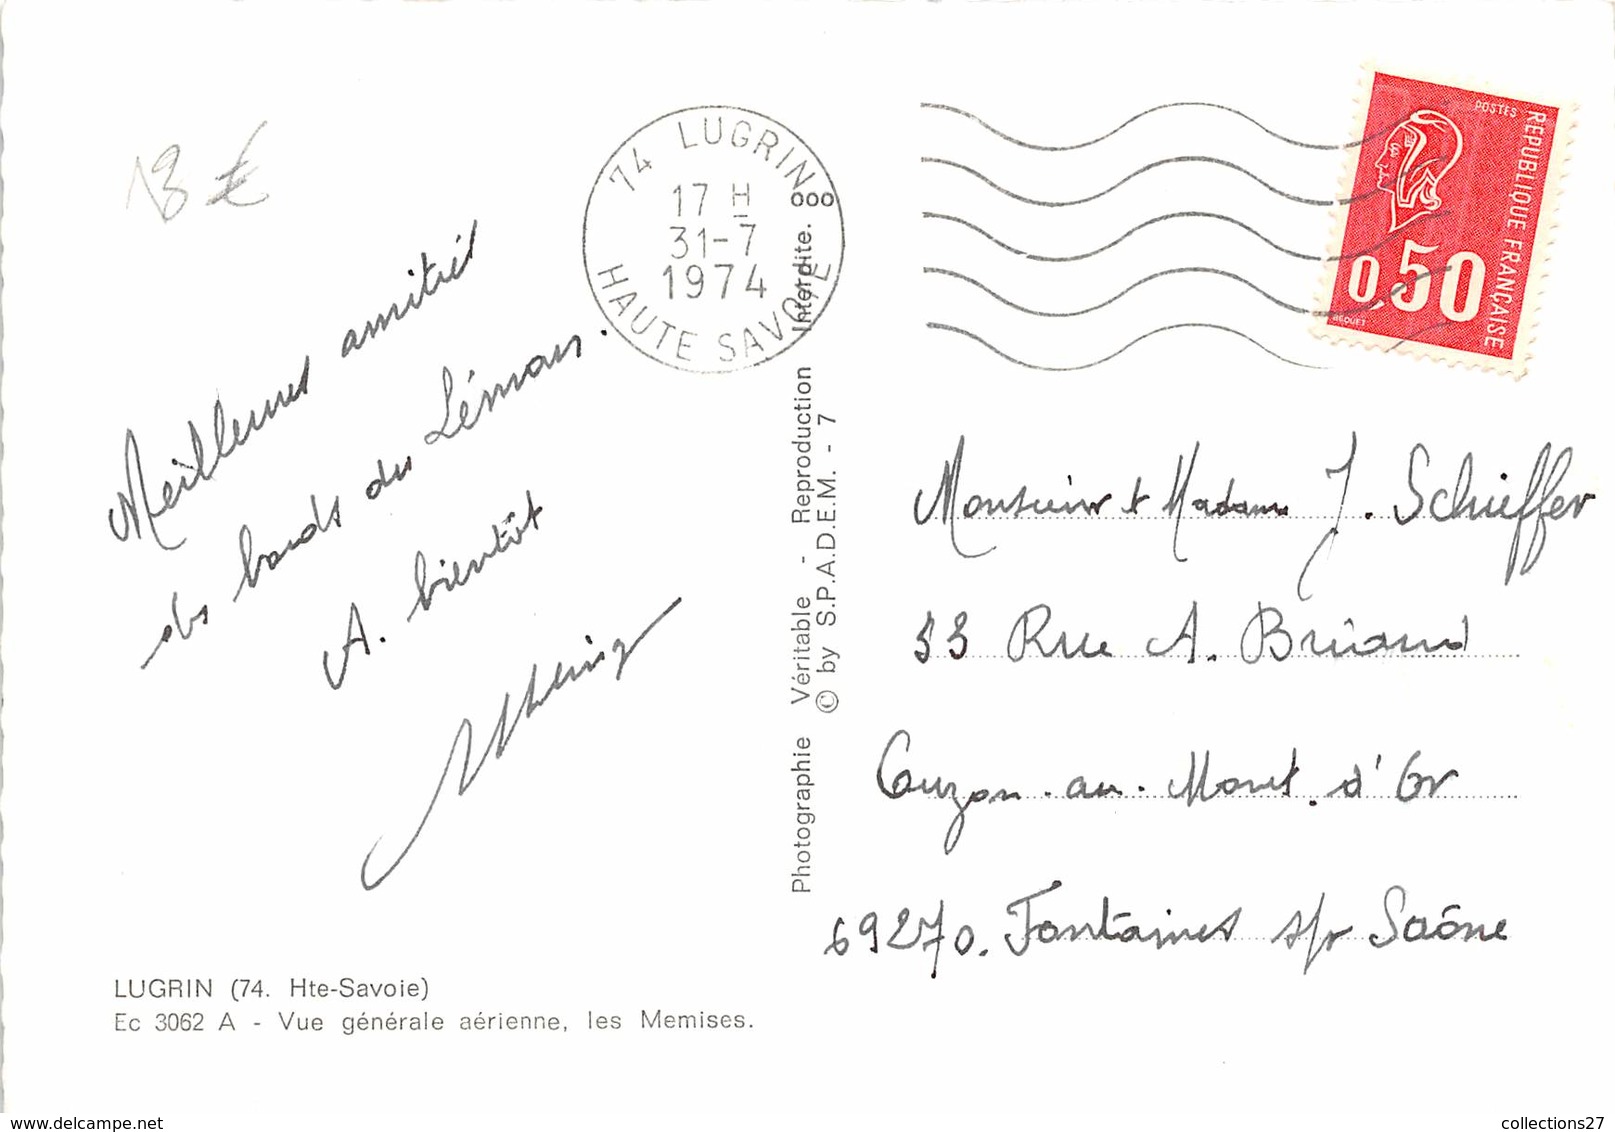 18 €
74 LUGRIN
17 H
31-7
1974
HAUTE SAVOIE
POSTES
REPUBLIQUE FRANÇAISE
0,50
BEQUET
Meilleures amitiés
des bords du Léman.
A. bientôt
Photographie Véritable - Reproduction Interdite.
© by S.P.A.D.E.M. - 7
Monsieur & Madame J. Schieffer
33 Rue A. Briand
Couzon-au-Mont d'Or
69270. Fontaines s/r Saône
LUGRIN (74. Hte-Savoie)
Ec 3062 A - Vue générale aérienne, les Memises.
www.delcampe.net
collections27